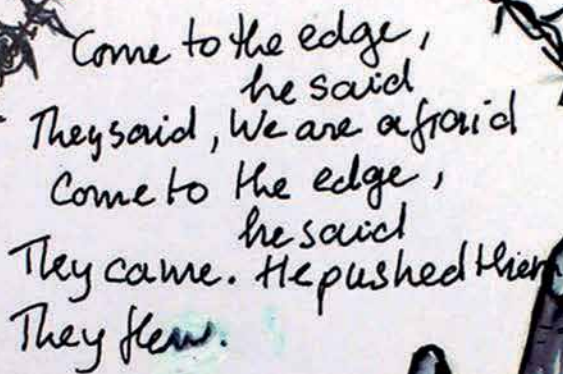 Come to the edge,
he said
They said, We are afraid
Come to the edge,
he said
They came. He pushed them
They flew.